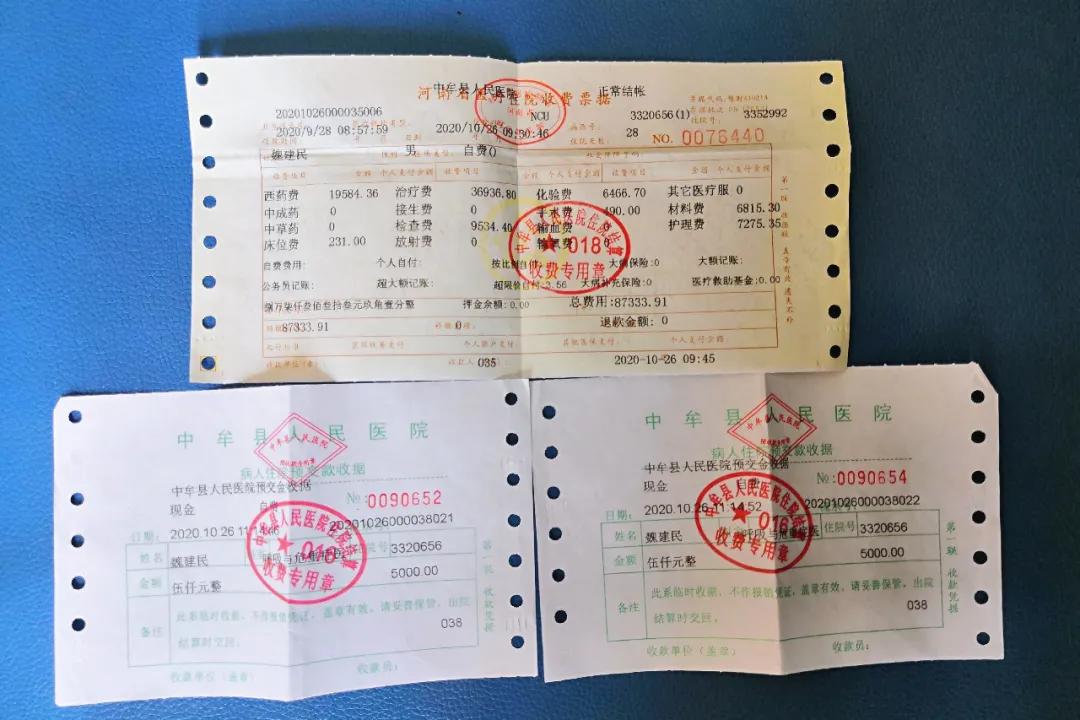 中牟县人民医院 正常结帐
河南省医疗住院收费票据
20201026000035006 NCU 3320656(1) 3352992
2020/9/28 08:57:59 2020/10/26 09:30:46 28 NO. 0076440
魏建民 男 自费()
收费项目 金额 个人支付金额 收费项目 金额 个人支付金额 收费项目 金额 个人支付金额
西药费 19584.36 治疗费 36936.80 化验费 6466.70 其它医疗服 0
中成药 0 接生费 0 手术费 490.00 材料费 6815.30
中草药 0 检查费 9534.40 输血费 0 护理费 7275.35
床位费 231.00 放射费 0 输氧费 0
自费费用: 个人自付: 按比例自付: 大病保险:0 大额记账:
公务员记账: 超大额记账: 超限价自付:3.56 大病补充保险:0 医疗救助基金:0.00
捌万柒仟叁佰叁拾叁元玖角壹分整 押金余额:0.00 总费用:87333.91
87333.91 0 退款金额: 0
个人账户支付 其他医保支付 个人支付金额
收款单位(章) 收款人 035 2020-10-26 09:45
中牟县人民医院住院结算
018
收费专用章
中牟县人民医院
中牟县人民医院
病人住院预交款收据
中牟县人民医院预交金收据
现金 自费 №:0090652
日期: 2020.10.26 11 20201026000038021
姓名 魏建民 呼吸与危重症医 住院号 3320656
金额 伍仟元整 5000.00
备注 此系临时收据,不作报销凭证,盖章有效,请妥善保管,出院
结算时交回。 038
收款单位(盖章) 收款员:
第一联 收款凭据
中牟县人民医院住院结算
016
收费专用章
中牟县人民医院
中牟县人民医院
病人住院预交款收据
中牟县人民医院预交金收据
现金 自费 №:0090654
日期: 2020.10.26 11:14:52 20201026000038022
姓名 魏建民 呼吸与危重症医 住院号 3320656
金额 伍仟元整 5000.00
备注 此系临时收据,不作报销凭证,盖章有效,请妥善保管,出院
结算时交回。 038
收款单位(盖章) 收款员:
第一联 收款凭据
中牟县人民医院住院结算
016
收费专用章